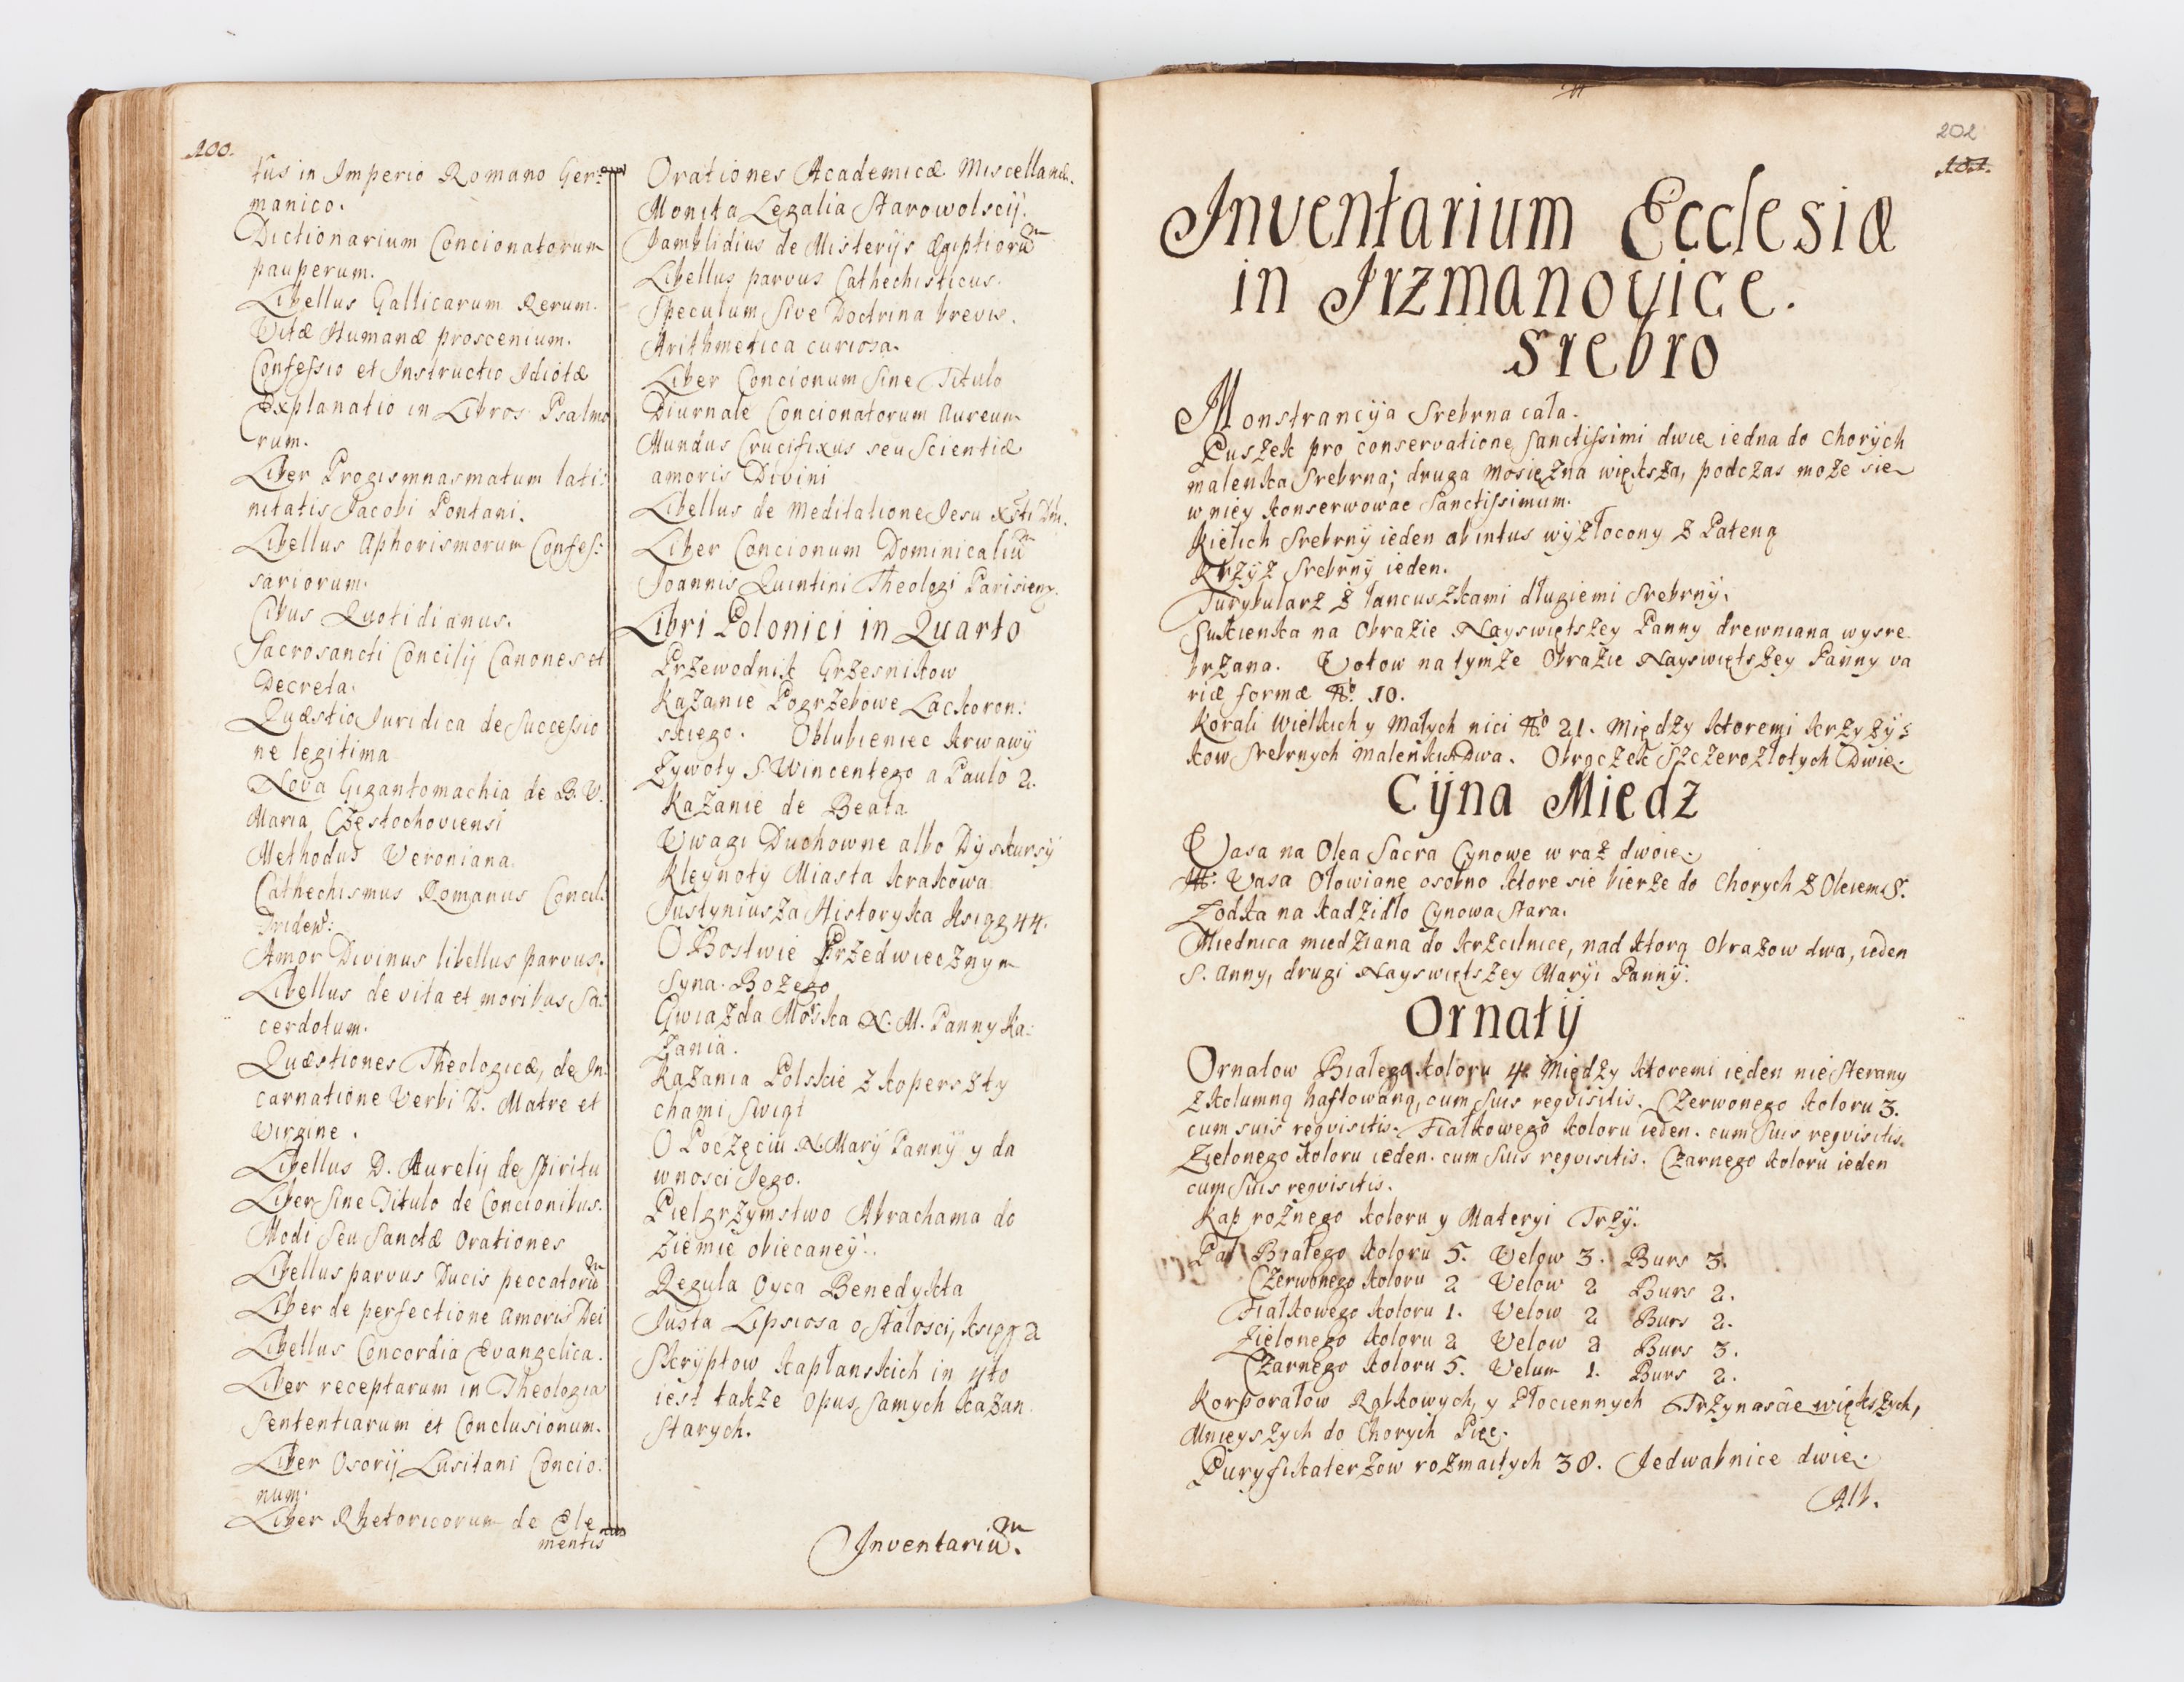 200.
tus in Imperio Romano Ger:
manico.
Dictionarium Concionatorum
pauperum.
Libellus Gallicarum Rerum.
Vitæ Humanæ proscenium.
Confessio et Instructio Idiotæ
Explanatio in Libros Psalmo
rum.
Liber Progismnasmatum lati:
nitatis Jacobi Pontani.
Libellus Aphorismorum Confes:
sariorum.
Cibus Quotidianus.
Sacrosancti Concilij Canones et
Decreta.
Quæstio Juridica de Successio
ne legitima
Nova Gigantomachia de B. V.
Maria Częstochoviensi
Methodus Veroniana.
Cathechismus Romanus Concil:
Triden:
Amor Divinus libellus parvus.
Libellus de vita et moribus Sa:
cerdotum.
Quæstiones Theologicæ, de In:
carnatione Verbi D. Matre et
Virgine.
Libellus D. Aurelij de Spiritu
Liber Sine Titulo de Concionibus.
Modi Seu Sanctæ Orationes
Libellus parvus Ducis peccatorũ
Liber de perfectione Amoris Dei
Libellus Concordia Evangelica.
Liber receptarum in Theologia
Sententiarum et Conclusionum.
Liber Osorij Lusitani Concio:
num.
Liber Rhetoricorum de Ele
mentis
Orationes Academicæ Miscellanæ.
Monita Legalia Starowolscij.
Jamblidius de Misterijs Ægiptiorũ
Libellus parvus Cathechisticus.
Speculum Sive Doctrina brevis.
Arithmetica curiosa.
Liber Concionum Sine Titulo
Diurnale Concionatorum Aureum
Mundus Crucifixus seu Scientiæ
amoris Divini
Libellus de Meditatione Jesu Xsti Dni.
Liber Concionum Dominicaliũ
Joannis Quintini Theologi Parisien.
Libri Polonici in Quarto
Przewodnik Grzesnikow
Kazanie Pogrzebowe Lackoron:
skiego. Oblubieniec krwawÿ
Zywoty S. Wincentego a Paulo 2.
Kazanie de Beata
Uwagi Duchowne albo Dyskursÿ
Kleynoty Miasta Krakowa
Justyniusza Historyka ksiąg 44.
O Bostwie Przedwiecznym
Syna Bozego
Gwiazda Morska N. M. Panny Ka:
zania.
Kazania Polskie z koperszty
chami Swiąt
O Poczęciu N. Marÿ Pannÿ y da
wnosci Jego.
Pielgrzymstwo Abrachama do
ziemie obiecaneÿ.
Regula Oyca Benedykta
Justa Lipsiosa o Stałosci, ksiąg 2
Skryptow kapłanskich in 4to
iest takze Opus Samych kazan
Starych.
Inventariũ.
202
201.
Inventarium Ecclesiæ
in Irzmanovice.
Srebro
Monstrancÿa Srebrna cała.
Puszek pro conservatione Sanctissimi dwie iedna do Chorÿch
malenka Srebrna; druga mosiężna większa, podczas moze sie
w niey konserwowac Sanctissimum.
Kielich Srebrnÿ ieden ab intus wÿzłoconÿ z Pateną
Krzÿz Srebrnÿ ieden.
Turybularz z łancuszkami długiemi Srebrnÿ.
Sukienka na Obrazie Nayswiętszey Panny drewniana wysre
brzana. Votow na tymze Obrazie Nayswiętszey Panny va
riæ formæ No 10.
Korali wielkich y Małych nici No 21. Między ktoremi krzyzÿ:
kow Srebrnych malenkich Dwa. Obrączek Szczerozłotych Dwie.
Cÿna Miedz
Vasa na Olea Sacra Cynowe w raz dwoie.
It: Vasa Ołowiane osobno ktore sie bierze do Chorych z Oleiem S.
Łodka na kadzidło Cynowa Stara.
Miednica miedziana do krzcilnice, nad ktorą Obrazow dwa, ieden
S. Anny, drugi Nayswiętszey Maryi Pannÿ.
Ornatÿ
Ornatow Białego koloru 4. Między ktoremi ieden nie Sterany
z kolumną haftowaną, cum suis reqvisitis. Czerwonego koloru 3.
cum suis reqvisitis. Fiałkowego koloru ieden. cum suis reqvisitis.
Zielonego koloru ieden. cum suis reqvisitis. Czarnego koloru ieden
cum suis reqvisitis.
Kap roznego koloru y Materyi Trzÿ.
Pal Białego koloru 5. Velow 3. Burs 3.
Czerwonego koloru 2 Velow 2 Burs 2.
Fiałkowego koloru 1. Velow 2 Burs 2.
Zielonego koloru 2 Velow 2 Burs 3.
Czarnego koloru 5. Velum 1. Burs 2.
Korporałow Rąbkowych, y Płociennych Trzynascie większych,
Mnieyszych do Chorych Pięc.
Puryfikaterzow rozmaitych 38. Jedwabnice dwie.
Alb.